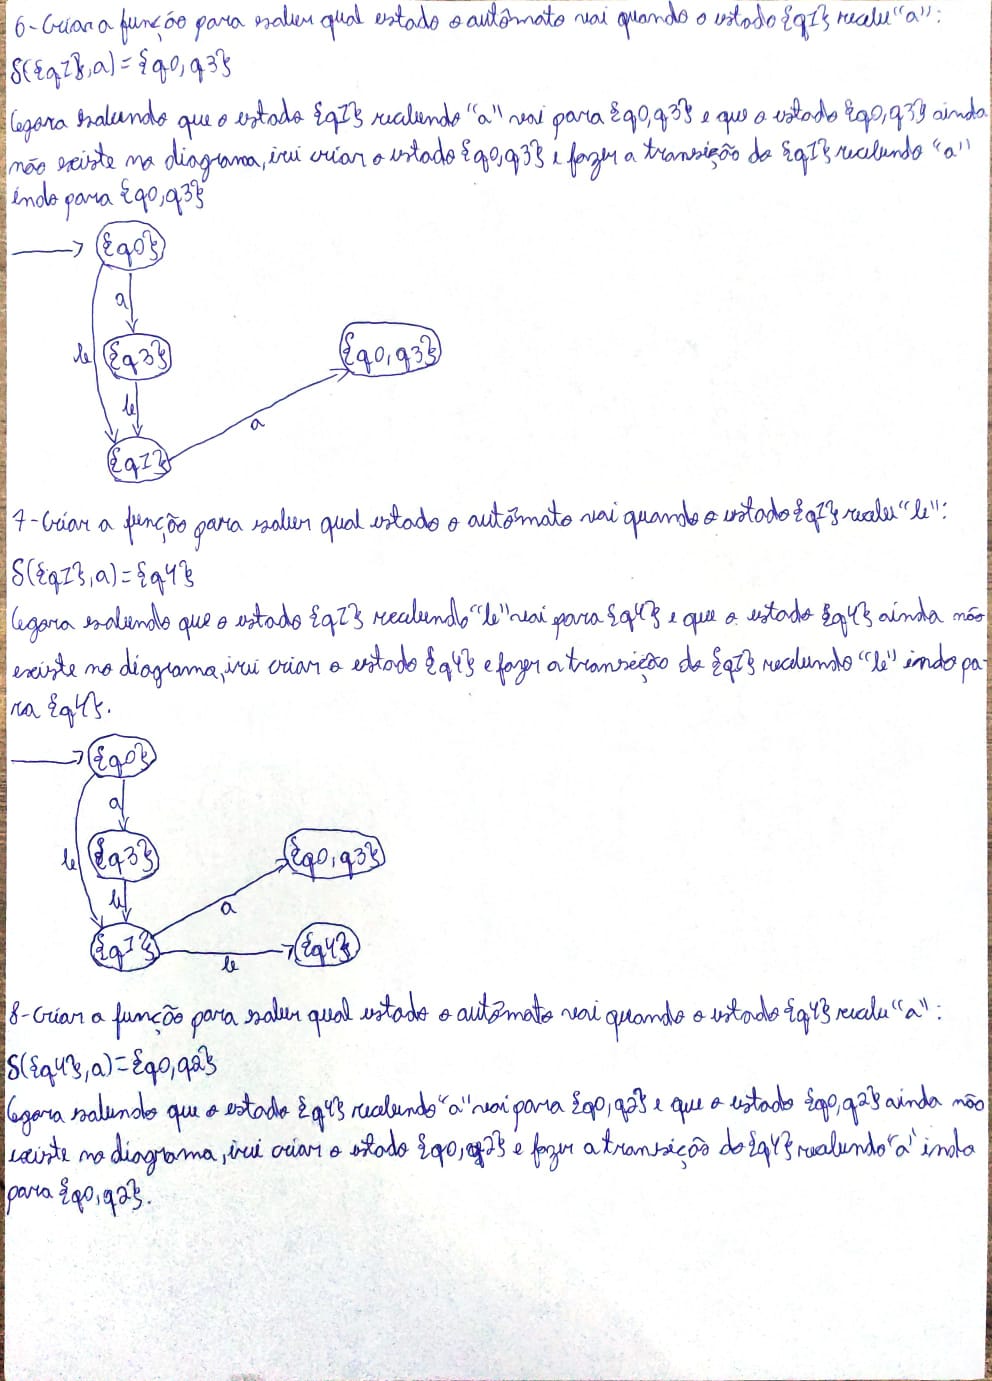 6-Criar a função para saber qual estado o autômato vai quando o estado {q1} recebe "a":
δ({q1},a)={q0,q3}
Agora sabendo que o estado {q1} recebendo "a" vai para {q0,q3} e que o estado {q0,q3} ainda
não existe no diagrama, irei criar o estado {q0,q3} e fazer a transição do {q1} recebendo "a"
indo para {q0,q3}
{q0}
a
b
{q3}
{q0,q3}
b
a
{q1}
7-Criar a função para saber qual estado o autômato vai quando o estado {q1} recebe "b":
δ({q1},a)={q4}
Agora sabendo que o estado {q1} recebendo "b" vai para {q4} e que o estado {q4} ainda não
existe no diagrama, irei criar o estado {q4} e fazer a transição do {q1} recebendo "b" indo pa-
ra {q4}.
{q0}
a
b
{q3}
{q0,q3}
b
a
{q1}
{q4}
b
8-Criar a função para saber qual estado o autômato vai quando o estado {q4} recebe "a":
δ({q4},a)={q0,q2}
Agora sabendo que o estado {q4} recebendo "a" vai para {q0,q2} e que o estado {q0,q2} ainda não
existe no diagrama, irei criar o estado {q0,q2} e fazer a transição do {q4} recebendo "a" indo
para {q0,q2}.